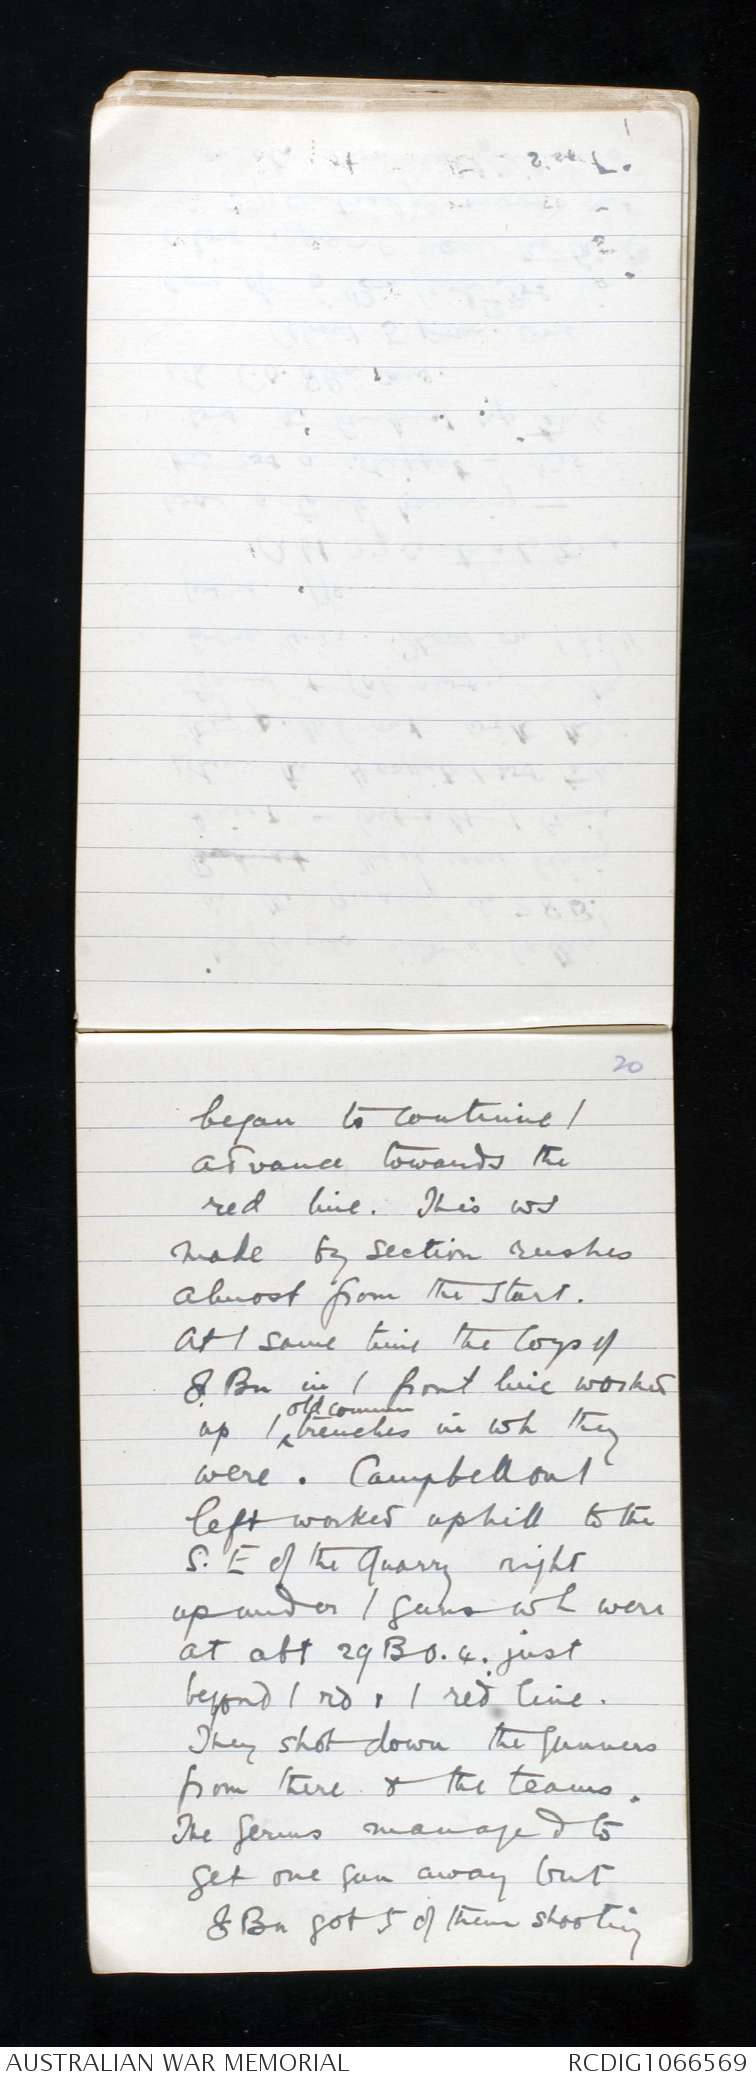 20
began to continue /
advance towards the
red line. This ws
made by section rushes
almost from the start.
At / same time the Coys of
8 Bn in / front line worked
up / old commn trenches in wh they
were. Campbell on /
left worked uphill to the
S.E of the Quarry right
up under / guns wh were
at abt 29 B 0.4. just
beyond / rd & / red line.
They shot down the gunners
from there & the teams.
The Germs managed to
get one gun away but
8 Bn got 5 of them shooting
AUSTRALIAN WAR MEMORIAL
RCDIG1066569